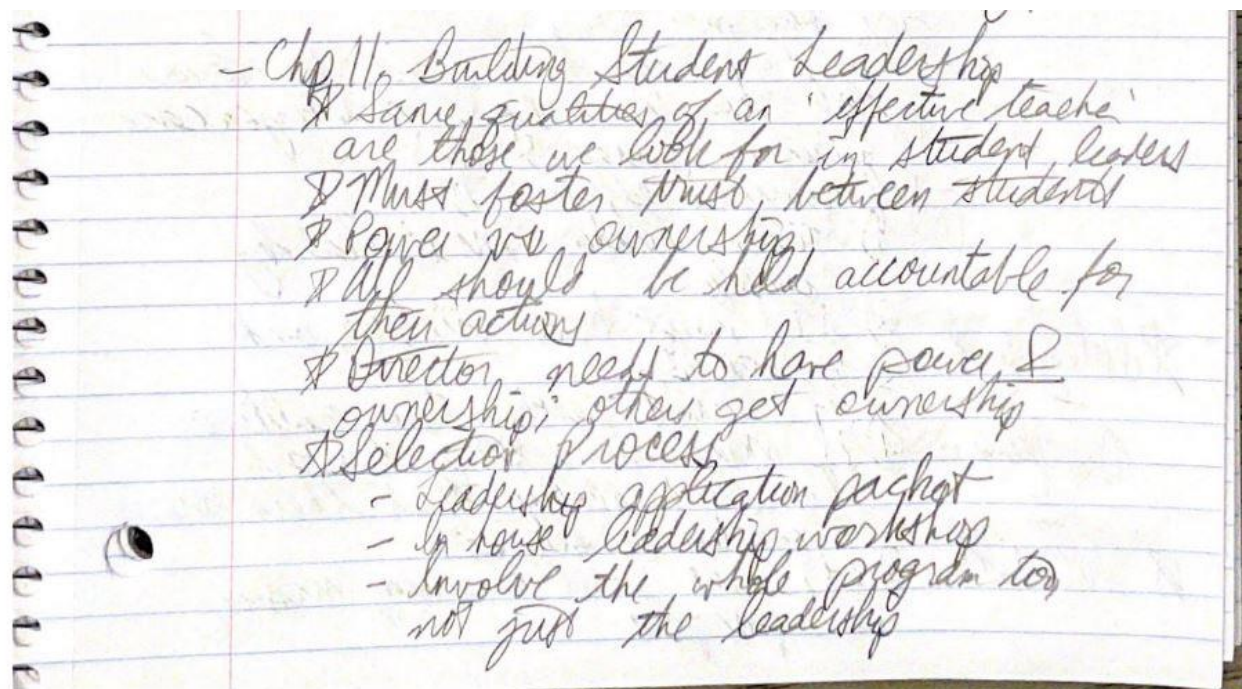 - Chp 11. Building Student Leadership
* Same qualities of an 'effective teacher'
are those we look for in student leaders
* Must foster trust between students
* Power vs. ownership
* All should be held accountable for
their actions
* Director needs to have power &
ownership; others get ownership
* Selection process
- Leadership application packet
- In house leadership workshop
- Involve the whole program too,
not just the leadership